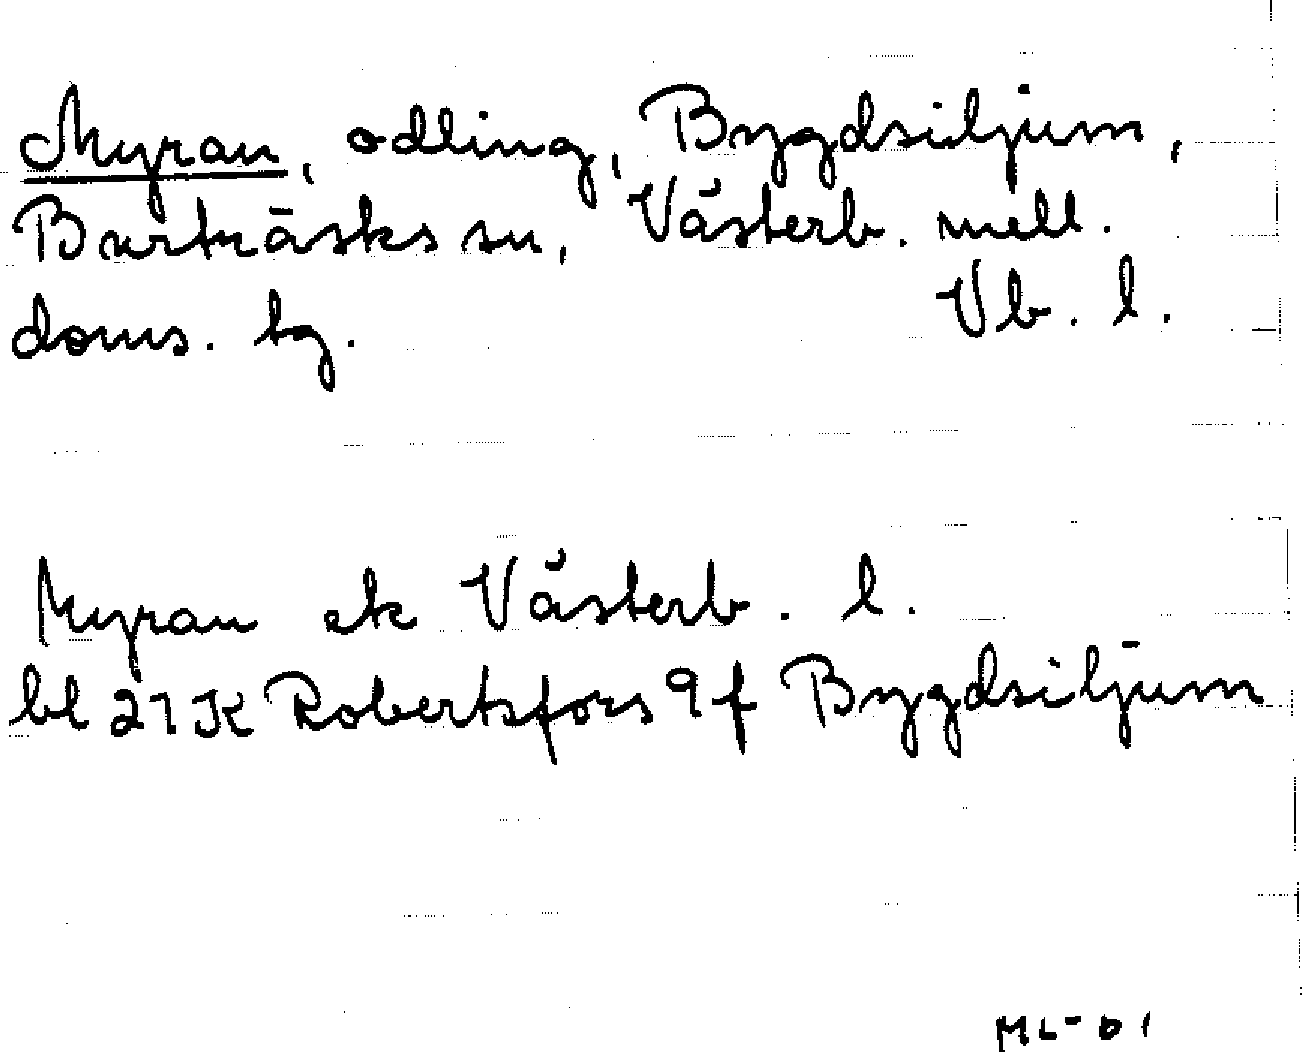 Myran, odling, Bygdsiljum,
Burträsks sn, Västerb. mell.
doms. tg. Vb. l.
Myran ek Västerb. l.
bl 21K Robertsfors 9f Bygdsiljum
ML-01